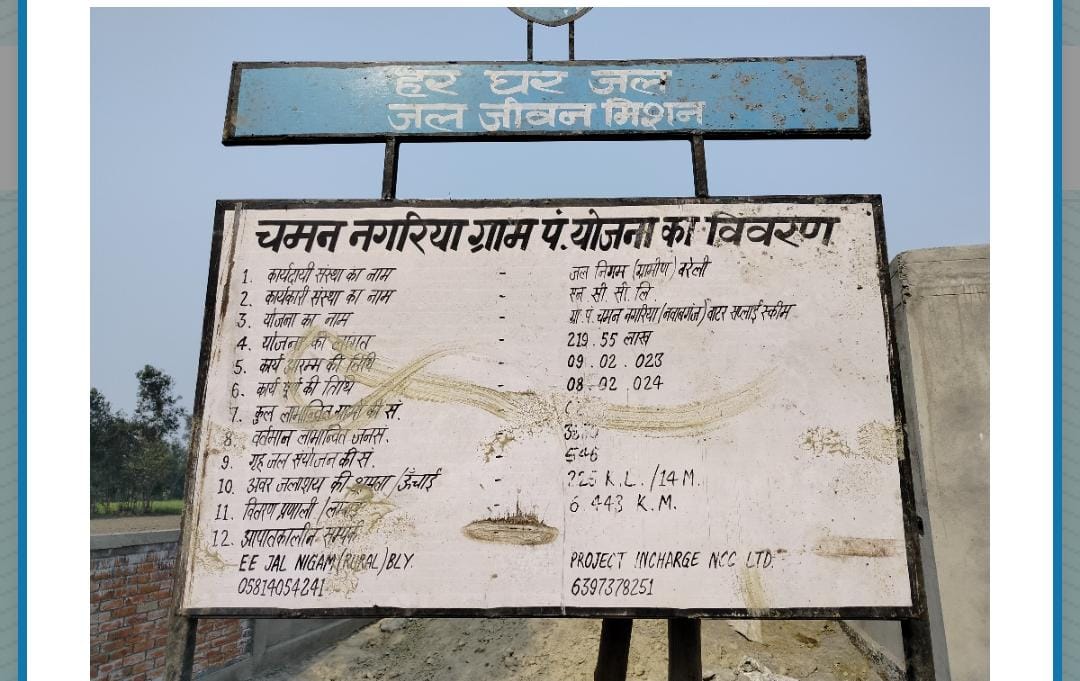 हर घर जल
जल जीवन मिशन
चमन नगरिया ग्राम पं. योजना का विवरण
1. कार्यदायी संस्था का नाम - जल निगम (ग्रामीण) बरेली
2. कार्यकारी संस्था का नाम - एन सी सी लि.
3. योजना का नाम - ग्रा. पं. चमन नगरिया (नवाबगंज) वाटर सप्लाई स्कीम
4. योजना की लागत - 219.55 लाख
5. कार्य आरम्भ की तिथि 09.02.023
6. कार्य पूर्ण की तिथि - 08.02.024
7. कुल लाभान्वित ग्रामों की सं.
8. वर्तमान लाभान्वित जनसं.
9. गृह जल संयोजन की सं. - 546
10. अवर जलाशय की क्षमता /ऊँचाई - 225 K.L. /14 M.
11. वितरण प्रणाली /लम्बाई 6.443 K.M.
12. आपातकालीन सम्पर्क
EE JAL NIGAM (RURAL) BLY. PROJECT INCHARGE NCC LTD.
05814054241 6397378251